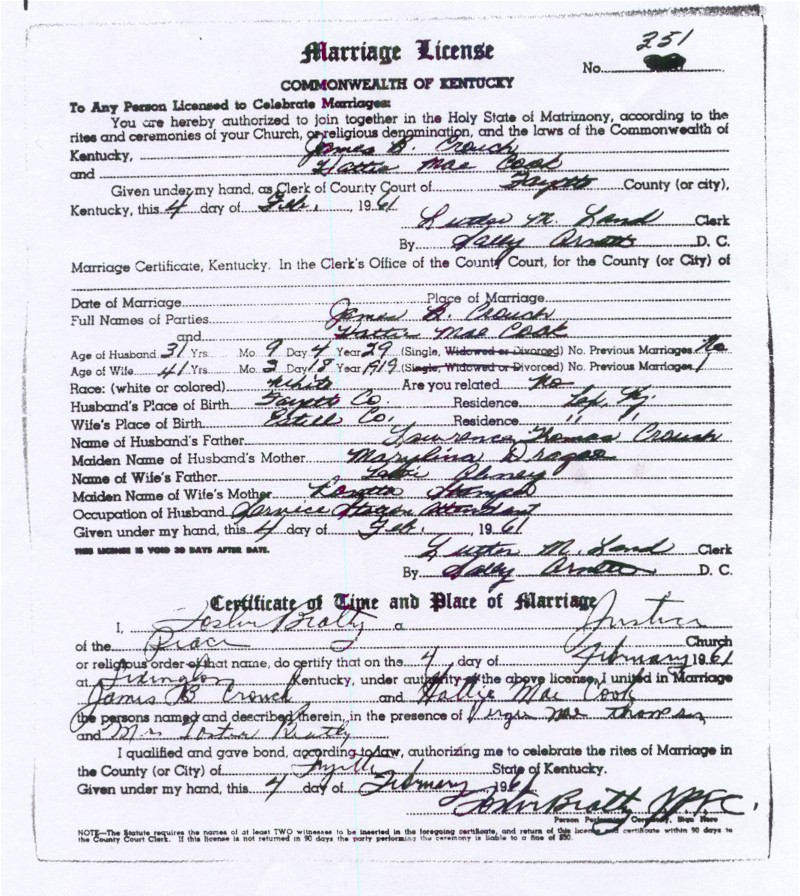 Marriage License
No. 351
COMMONWEALTH OF KENTUCKY
To Any Person Licensed to Celebrate Marriages:
You are hereby authorized to join together in the Holy State of Matrimony, according to the
rites and ceremonies of your Church, or religious denomination, and the laws of the Commonwealth of
Kentucky, James B. Crouch
and Hattie Mae Cook
Given under my hand, as Clerk of County Court of Fayette County (or city),
Kentucky, this 4 day of Feb., 1961
M. Land Clerk
By Sally Arnett D. C.
Marriage Certificate, Kentucky. In the Clerk's Office of the County Court, for the County (or City) of
Date of Marriage Place of Marriage
Full Names of Parties James B. Crouch
and Hattie Mae Cook
Age of Husband 31 Yrs. Mo 9 Day 4 Year 29 (Single, Widowed or Divorced) No. Previous Marriages No
Age of Wife 41 Yrs. Mo 3 Day 18 Year 1919 (Single, Widowed or Divorced) No. Previous Marriages 1
Race: (white or colored) White Are you related No
Husband's Place of Birth Fayette Co. Residence Lex, Ky.
Wife's Place of Birth Estill Co. Residence " "
Name of Husband's Father Lawrence Thomas Crouch
Maiden Name of Husband's Mother
Name of Wife's Father
Maiden Name of Wife's Mother
Occupation of Husband Service Station Attendant
Given under my hand, this 4 day of Feb., 1961
THIS LICENSE IS VOID 30 DAYS AFTER DATE.
M. Land Clerk
By Sally Arnett D. C.
Certificate of Time and Place of Marriage
I, Foster Beatty a Justice
of the Peace Church
or religious order of that name, do certify that on the 4 day of February 1961
at Lexington Kentucky, under authority of the above license, I united in Marriage
James B Crouch and Hattie Mae Cook
the persons named and described therein, in the presence of Mae Thompson
and Mrs Foster Beatty
I qualified and gave bond, according to law, authorizing me to celebrate the rites of Marriage in
the County (or City) of Fayette State of Kentucky.
Given under my hand, this 4 day of February 1961
Foster Beatty J.P.F.C.
Person Performing Ceremony, Sign Here
NOTE—The Statute requires the names of at least TWO witnesses to be inserted in the foregoing certificate, and return of this license and certificate within 90 days to
the County Court Clerk. If this license is not returned in 90 days the party performing the ceremony is liable to a fine of $50.